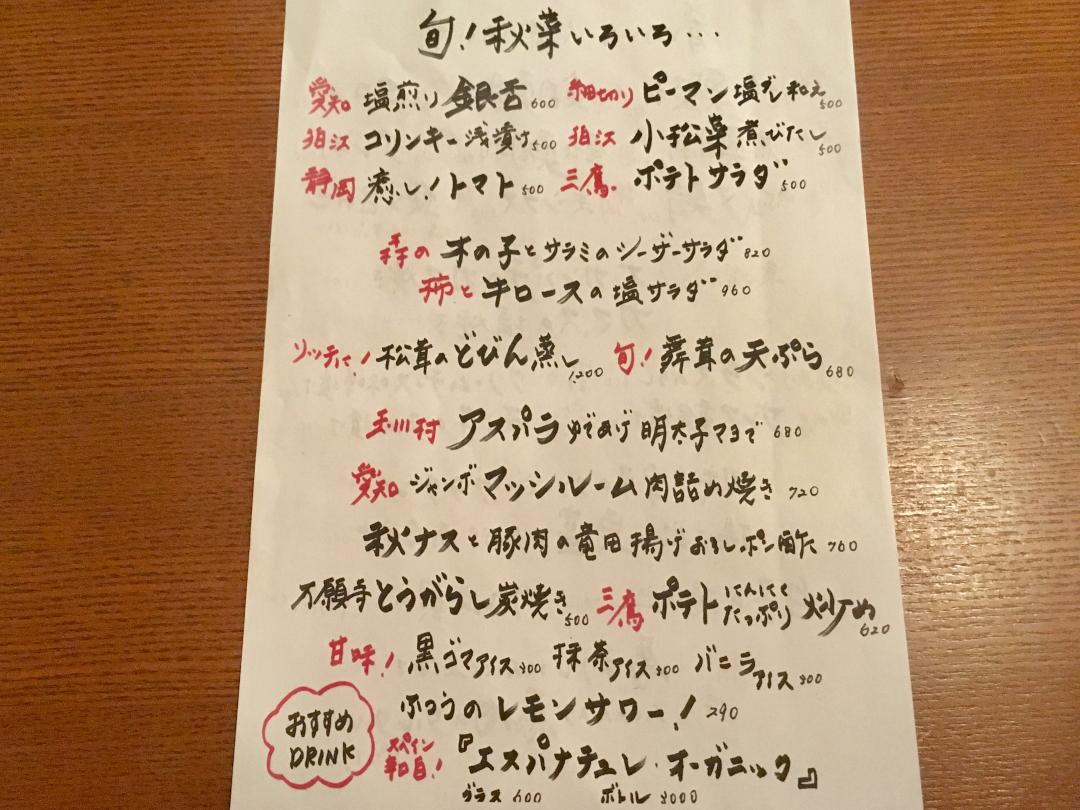 旬!秋菜いろいろ・・・
愛知 塩煎り銀杏 600 細切り ピーマン塩ダレ和え 500
狛江 コリンキー浅漬け 500 狛江 小松菜煮びたし 500
静岡 癒し!トマト 500 三鷹 ポテトサラダ 500
森の 木の子とサラミのシーザーサラダ 820
柿と 牛ロースの塩サラダ 960
ソッチヤ! 松茸のどびん蒸し 1,200 旬! 舞茸の天ぷら 680
玉川村 アスパラゆであげ 明太子マヨで 680
愛知 ジャンボマッシュルーム肉詰め焼き 720
秋ナスと豚肉の竜田揚げおろしポン酢 760
万願寺とうがらし炭焼き 500 三鷹 ポテトにんにくたっぷり炒め 620
甘味! 黒ゴマアイス 300 抹茶アイス 300 バニラアイス 300
ふつうのレモンサワー! 290
おすすめ
DRINK
スペイン
辛口白!
『エスパナチュレ・オーガニック』
グラス 600 ボトル 3000